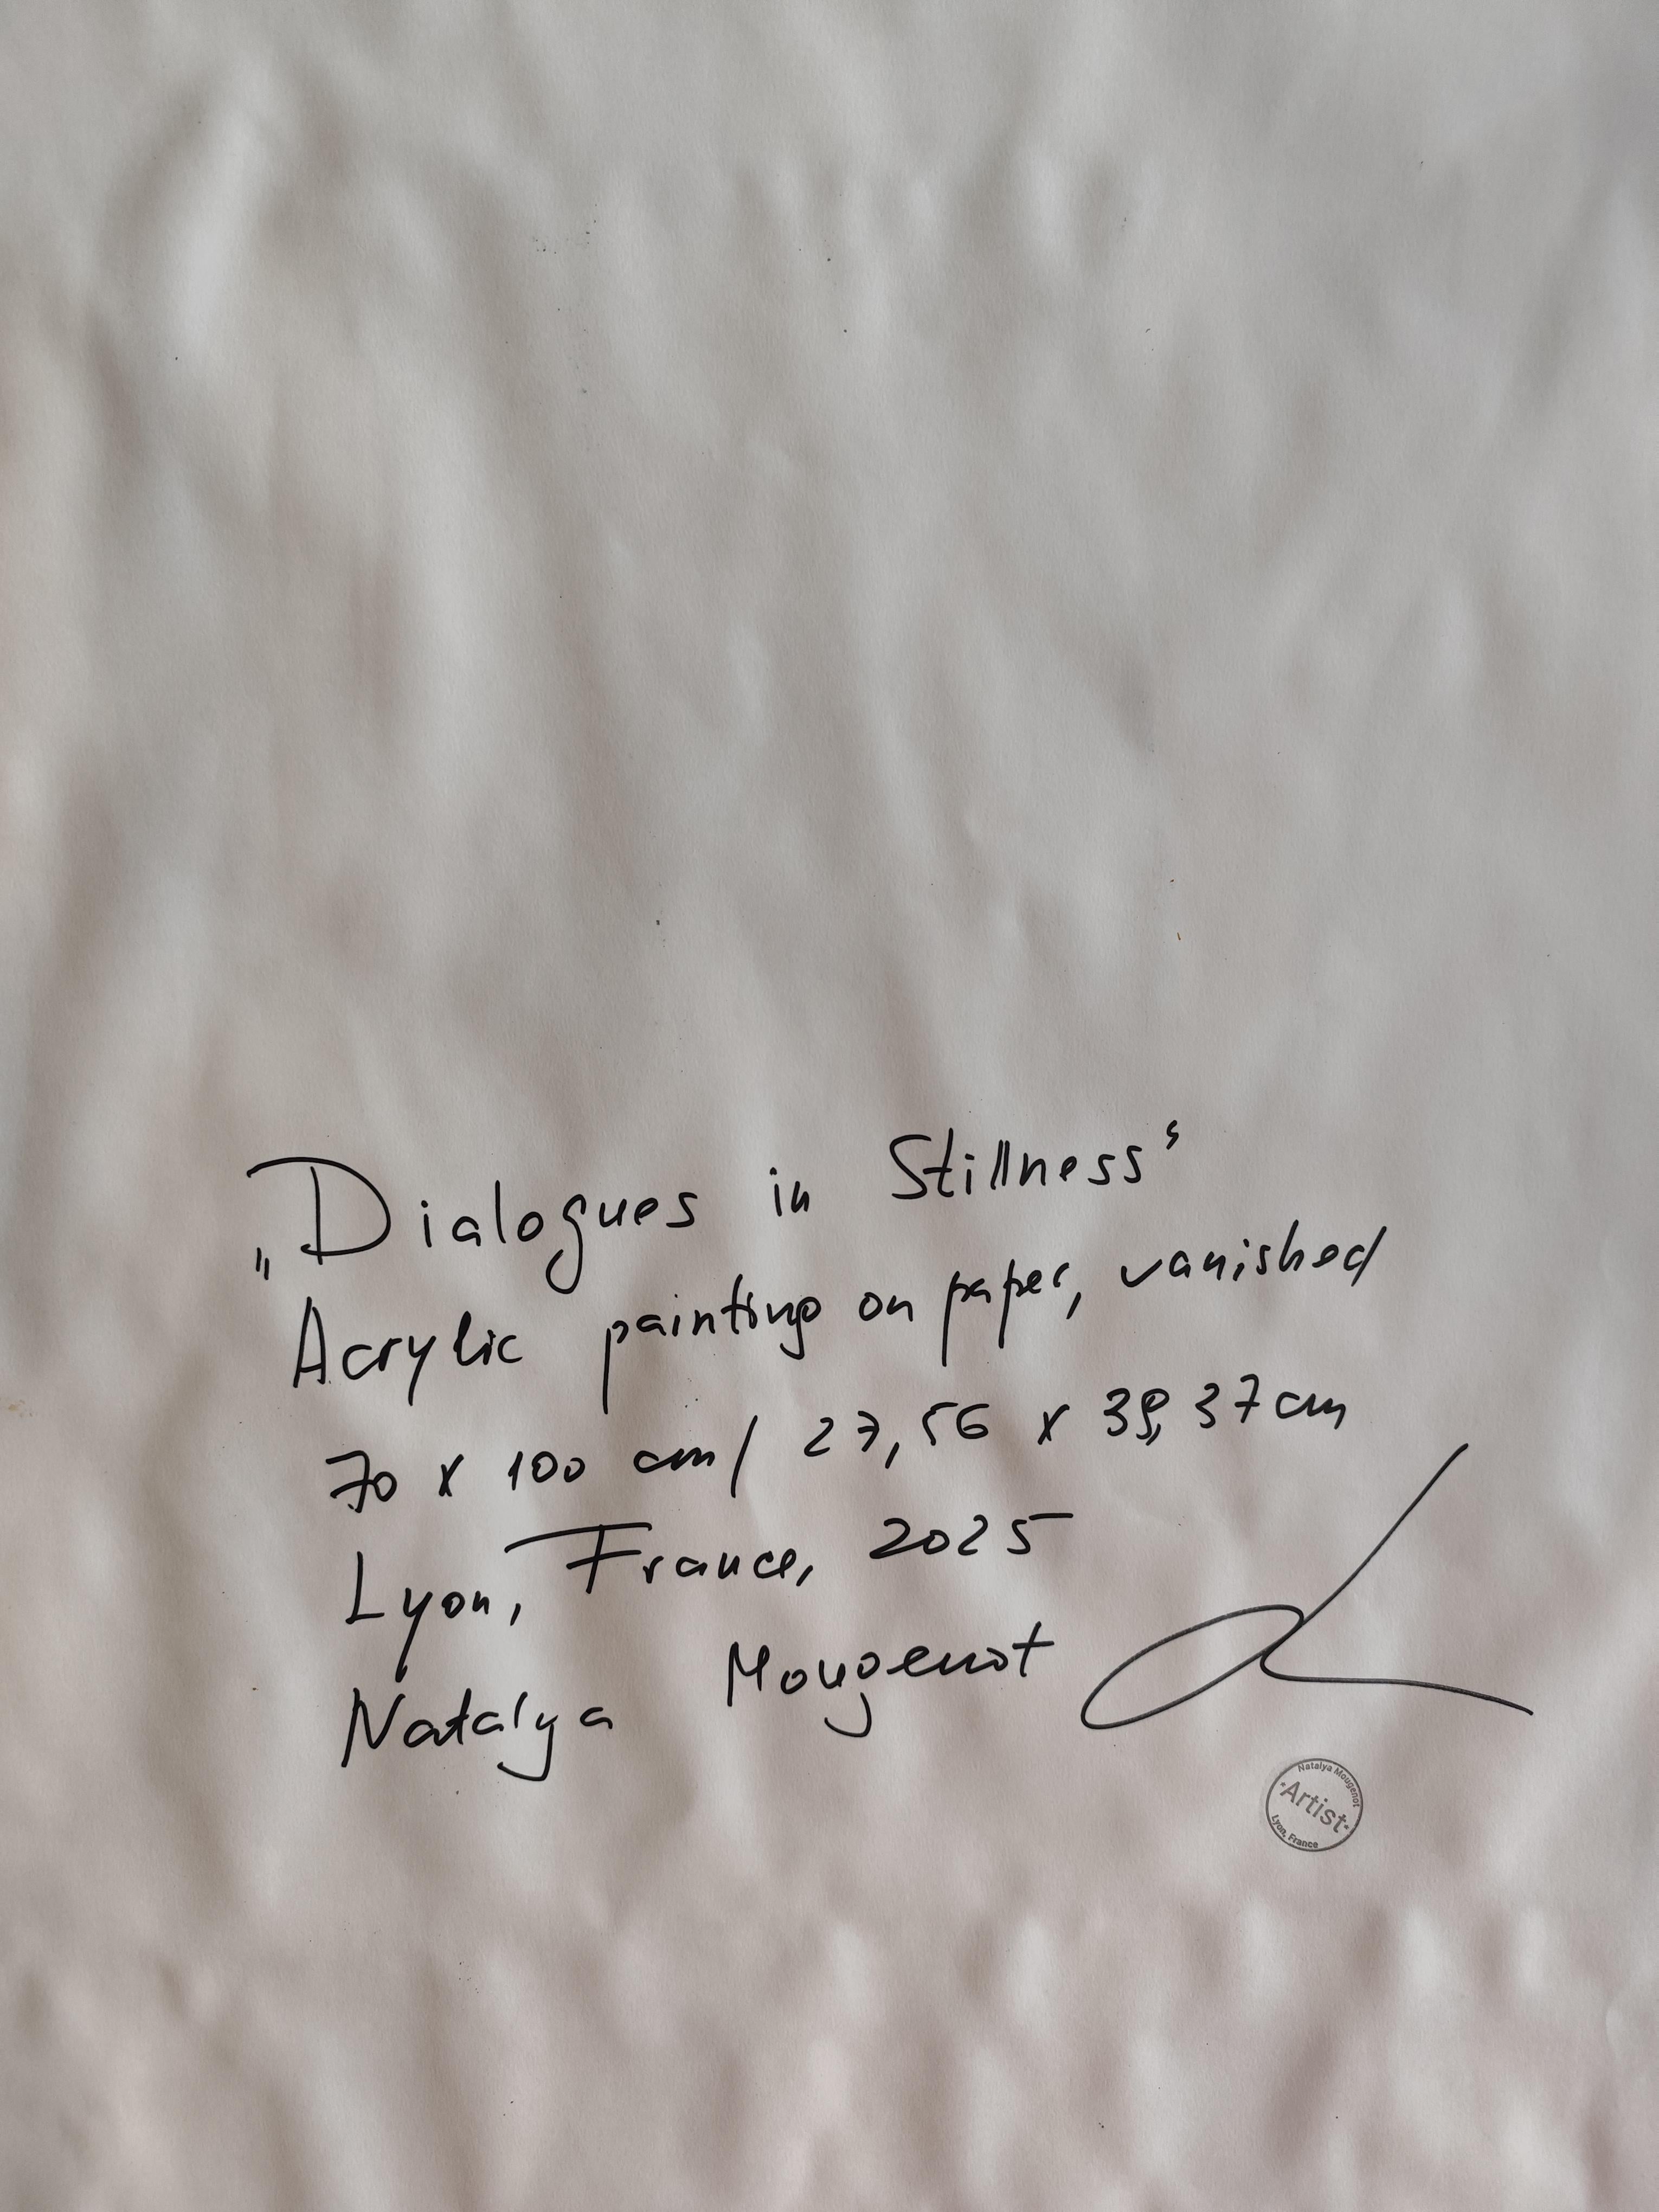 „Dialogues in Stillness“
Acrylic painting on paper, vanished
70 x 100 cm / 27,56 x 39,37 cm
Lyon, France, 2025
Natalya Mougenot
Natalya Mougenot
*Artist*
Lyon, France